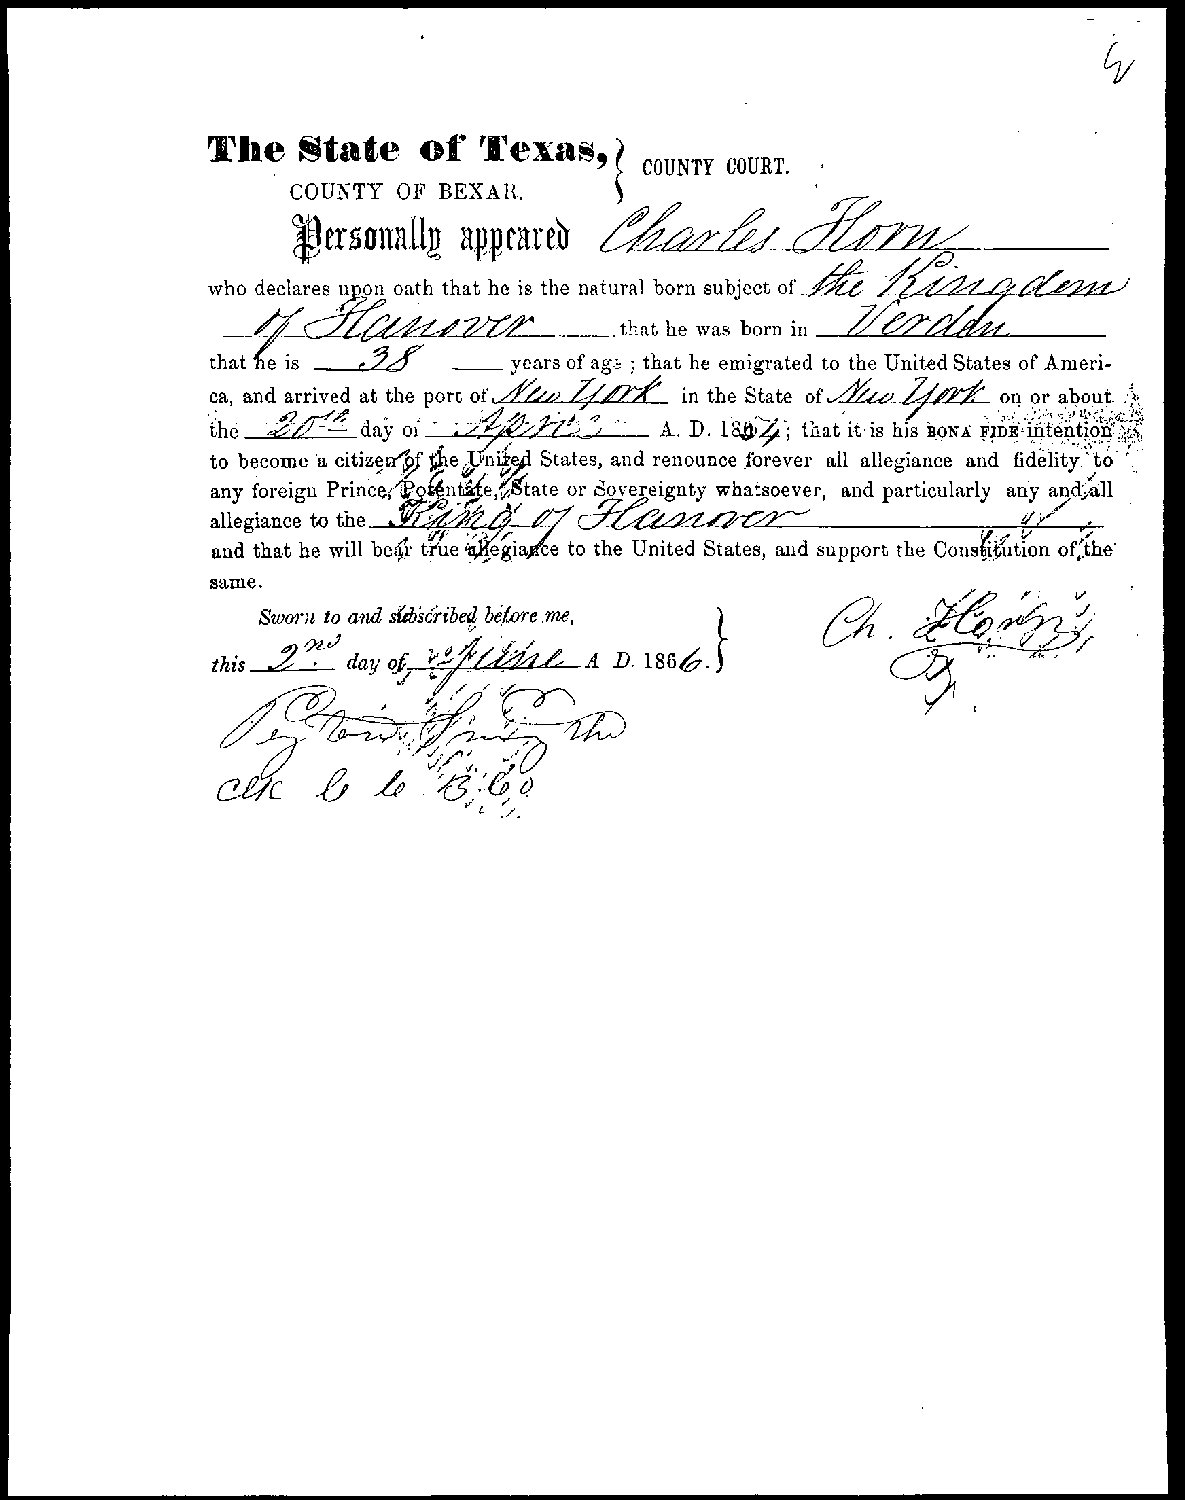 The State of Texas, } COUNTY COURT.
COUNTY OF BEXAR.
Personally appeared Charles Horn
who declares upon oath that he is the natural born subject of the Kingdom
of Hanover that he was born in Verden
that he is 38 years of age; that he emigrated to the United States of Ameri-
ca, and arrived at the port of New York in the State of New York on or about
the 20th day of April A. D. 18 4; that it is his BONA FIDE intention
to become a citizen of the United States, and renounce forever all allegiance and fidelity to
any foreign Prince, Potentate, State or Sovereignty whatsoever, and particularly any and all
allegiance to the King of Hanover
and that he will bear true allegiance to the United States, and support the Constitution of the
same.
Sworn to and subscribed before me,
this 2nd day of June A D. 1866. }
Ch. Horn
Peyton Smythe
Clk C C B Co